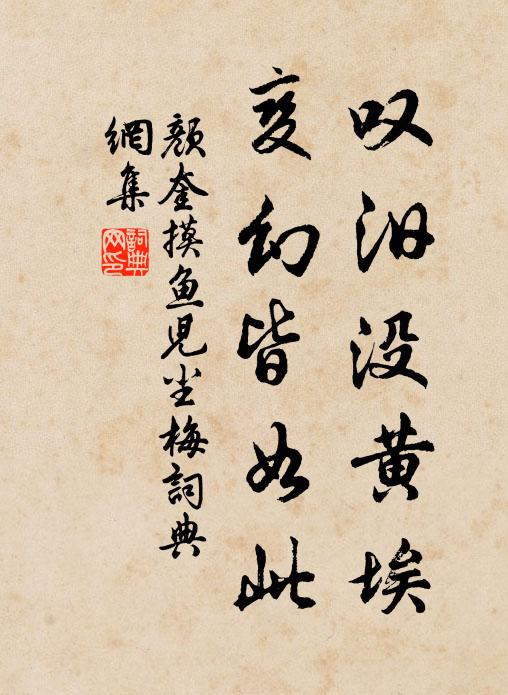 叹汩没黄埃
变幻皆如此
顔奎摸鱼児坐梅詞典
網集
詞典网印